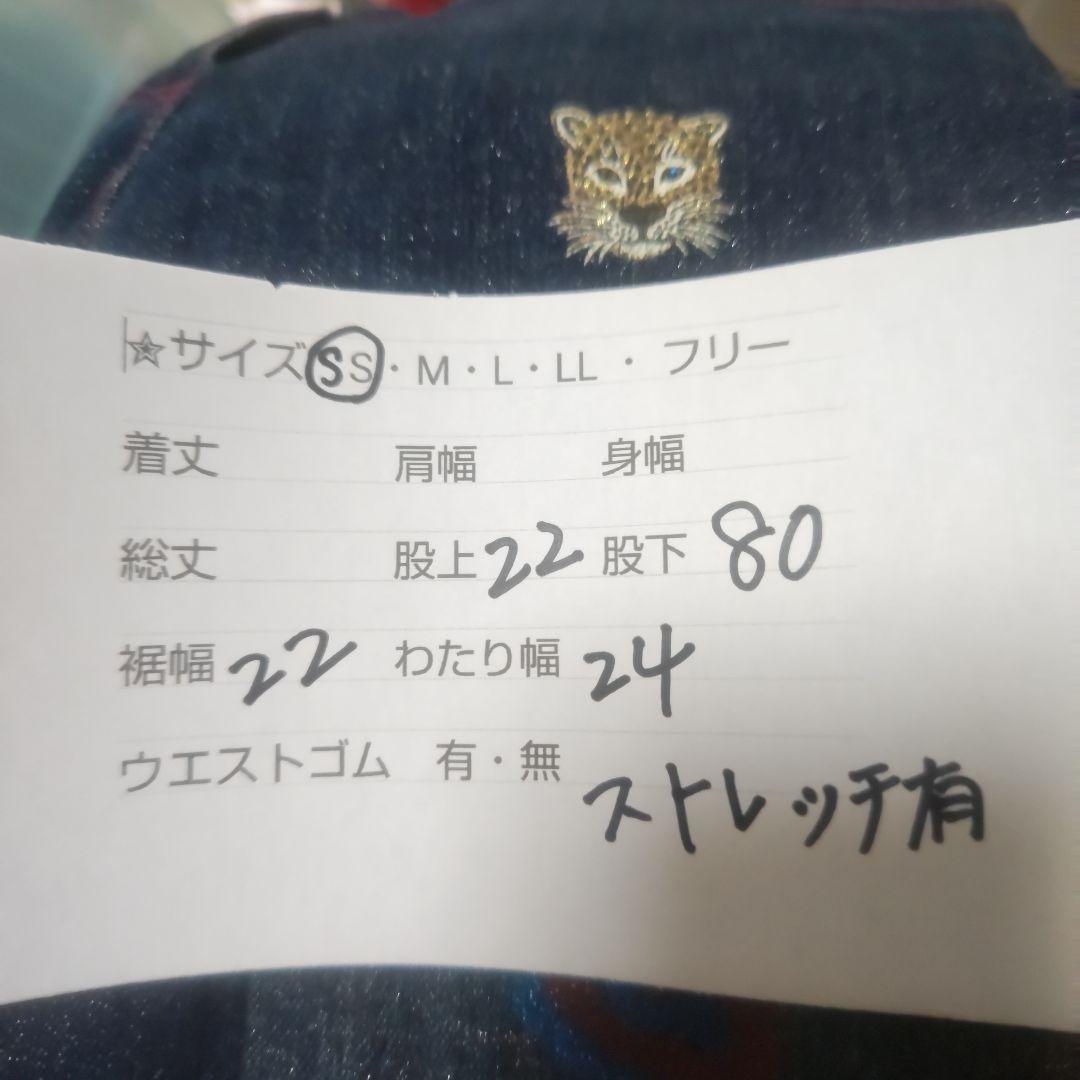 ☆サイズSS・M・L・LL・フリー
着丈 肩幅 身幅
総丈 股上22 股下 80
裾幅 22 わたり幅 24
ウエストゴム 有・無 ストレッチ有